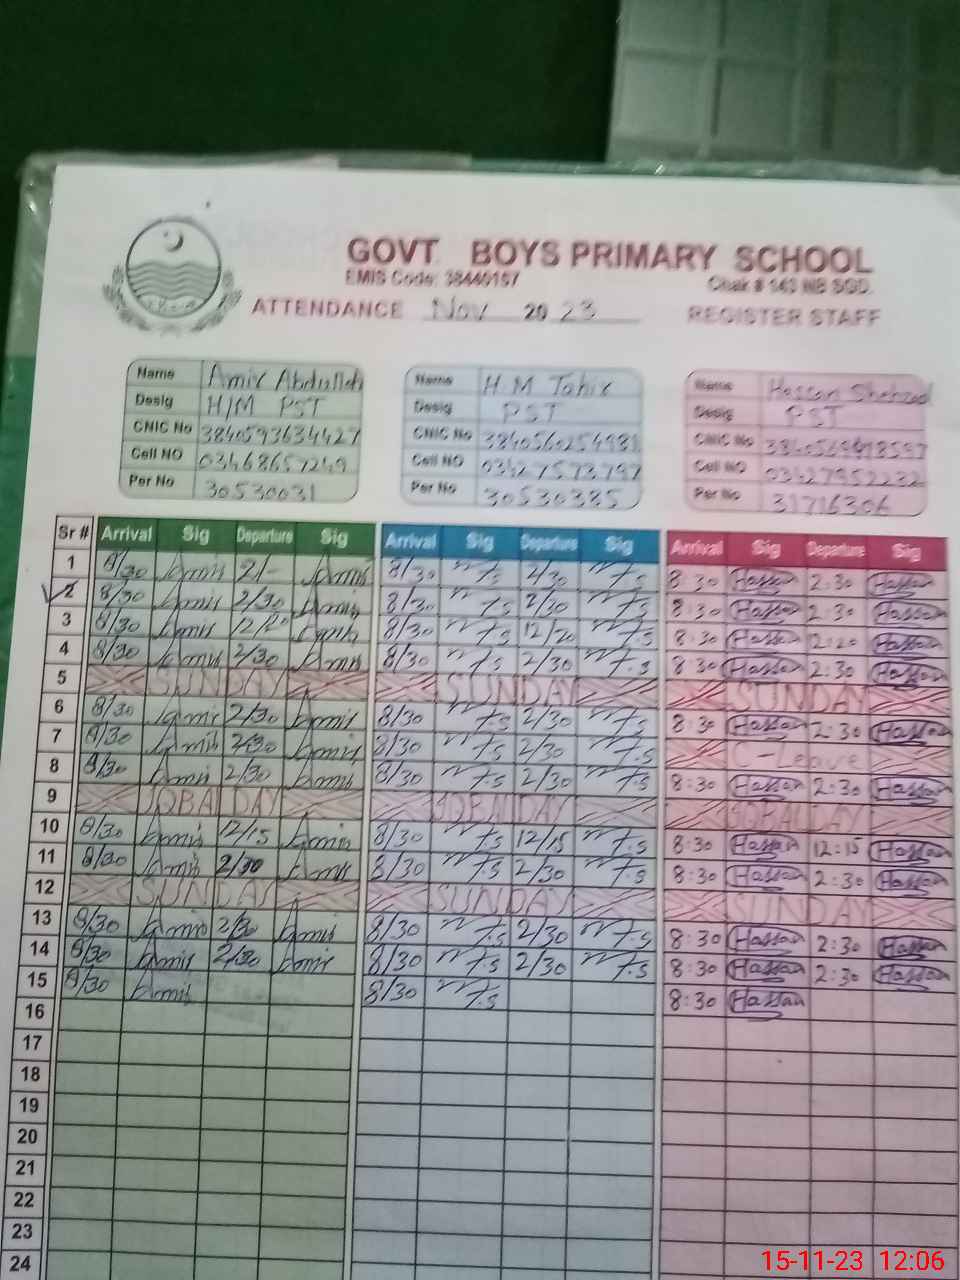 GOVT BOYS PRIMARY SCHOOL
EMIS Code: 38440187 Chak # 143 NB SGD.
ATTENDANCE Nov 2023 REGISTER STAFF
Name Amir Abdullah Name H M Tahir Name Hassan Shehzad
Desig H/M PST Desig PST Desig PST
CNIC No 3840593634427 CNIC No 3840560254981 CNIC No
Cell NO 03468657249 Cell NO 03427573797 Cell NO 03427952232
Per No 30530031 Per No 30530385 Per No 31716306
Sr # Arrival Sig Departure Sig Arrival Sig Departure Sig Arrival Sig Departure Sig
1 8/30 Amir 2/- Amir 8/30 m T.S 2/30 m T.S 8:30 Hassan 2:30 Hassan
2 8/30 Amir 2/30 Amir 8/30 m T.S 2/30 m T.S 8:30 Hassan 2:30 Hassan
3 8/30 Amir 12/20 Amir 8/30 m T.S 12/20 m T.S 8:30 Hassan 12:20 Hassan
4 8/30 Amir 2/30 Amir 8/30 m T.S 2/30 m T.S 8:30 Hassan 2:30 Hassan
5 SUNDAY SUNDAY SUNDAY
6 8/30 Amir 2/30 Amir 8/30 m T.S 2/30 m T.S 8:30 Hassan 2:30 Hassan
7 8/30 Amir 2/30 Amir 8/30 m T.S 2/30 m T.S C-Leave
8 8/30 Amir 2/30 Amir 8/30 m T.S 2/30 m T.S 8:30 Hassan 2:30 Hassan
9 IQBAL DAY IQBAL DAY IQBAL DAY
10 8/30 Amir 12/15 Amir 8/30 m T.S 12/15 m T.S 8:30 Hassan 12:15 Hassan
11 8/30 Amir 2/30 Amir 8/30 m T.S 2/30 m T.S 8:30 Hassan 2:30 Hassan
12 SUNDAY SUNDAY SUNDAY
13 8/30 Amir 2/30 Amir 8/30 m T.S 2/30 m T.S 8:30 Hassan 2:30 Hassan
14 8/30 Amir 2/30 Amir 8/30 m T.S 2/30 m T.S 8:30 Hassan 2:30 Hassan
15 8/30 Amir 8/30 m T.S 8:30 Hassan
16
17
18
19
20
21
22
23
24
15-11-23 12:06